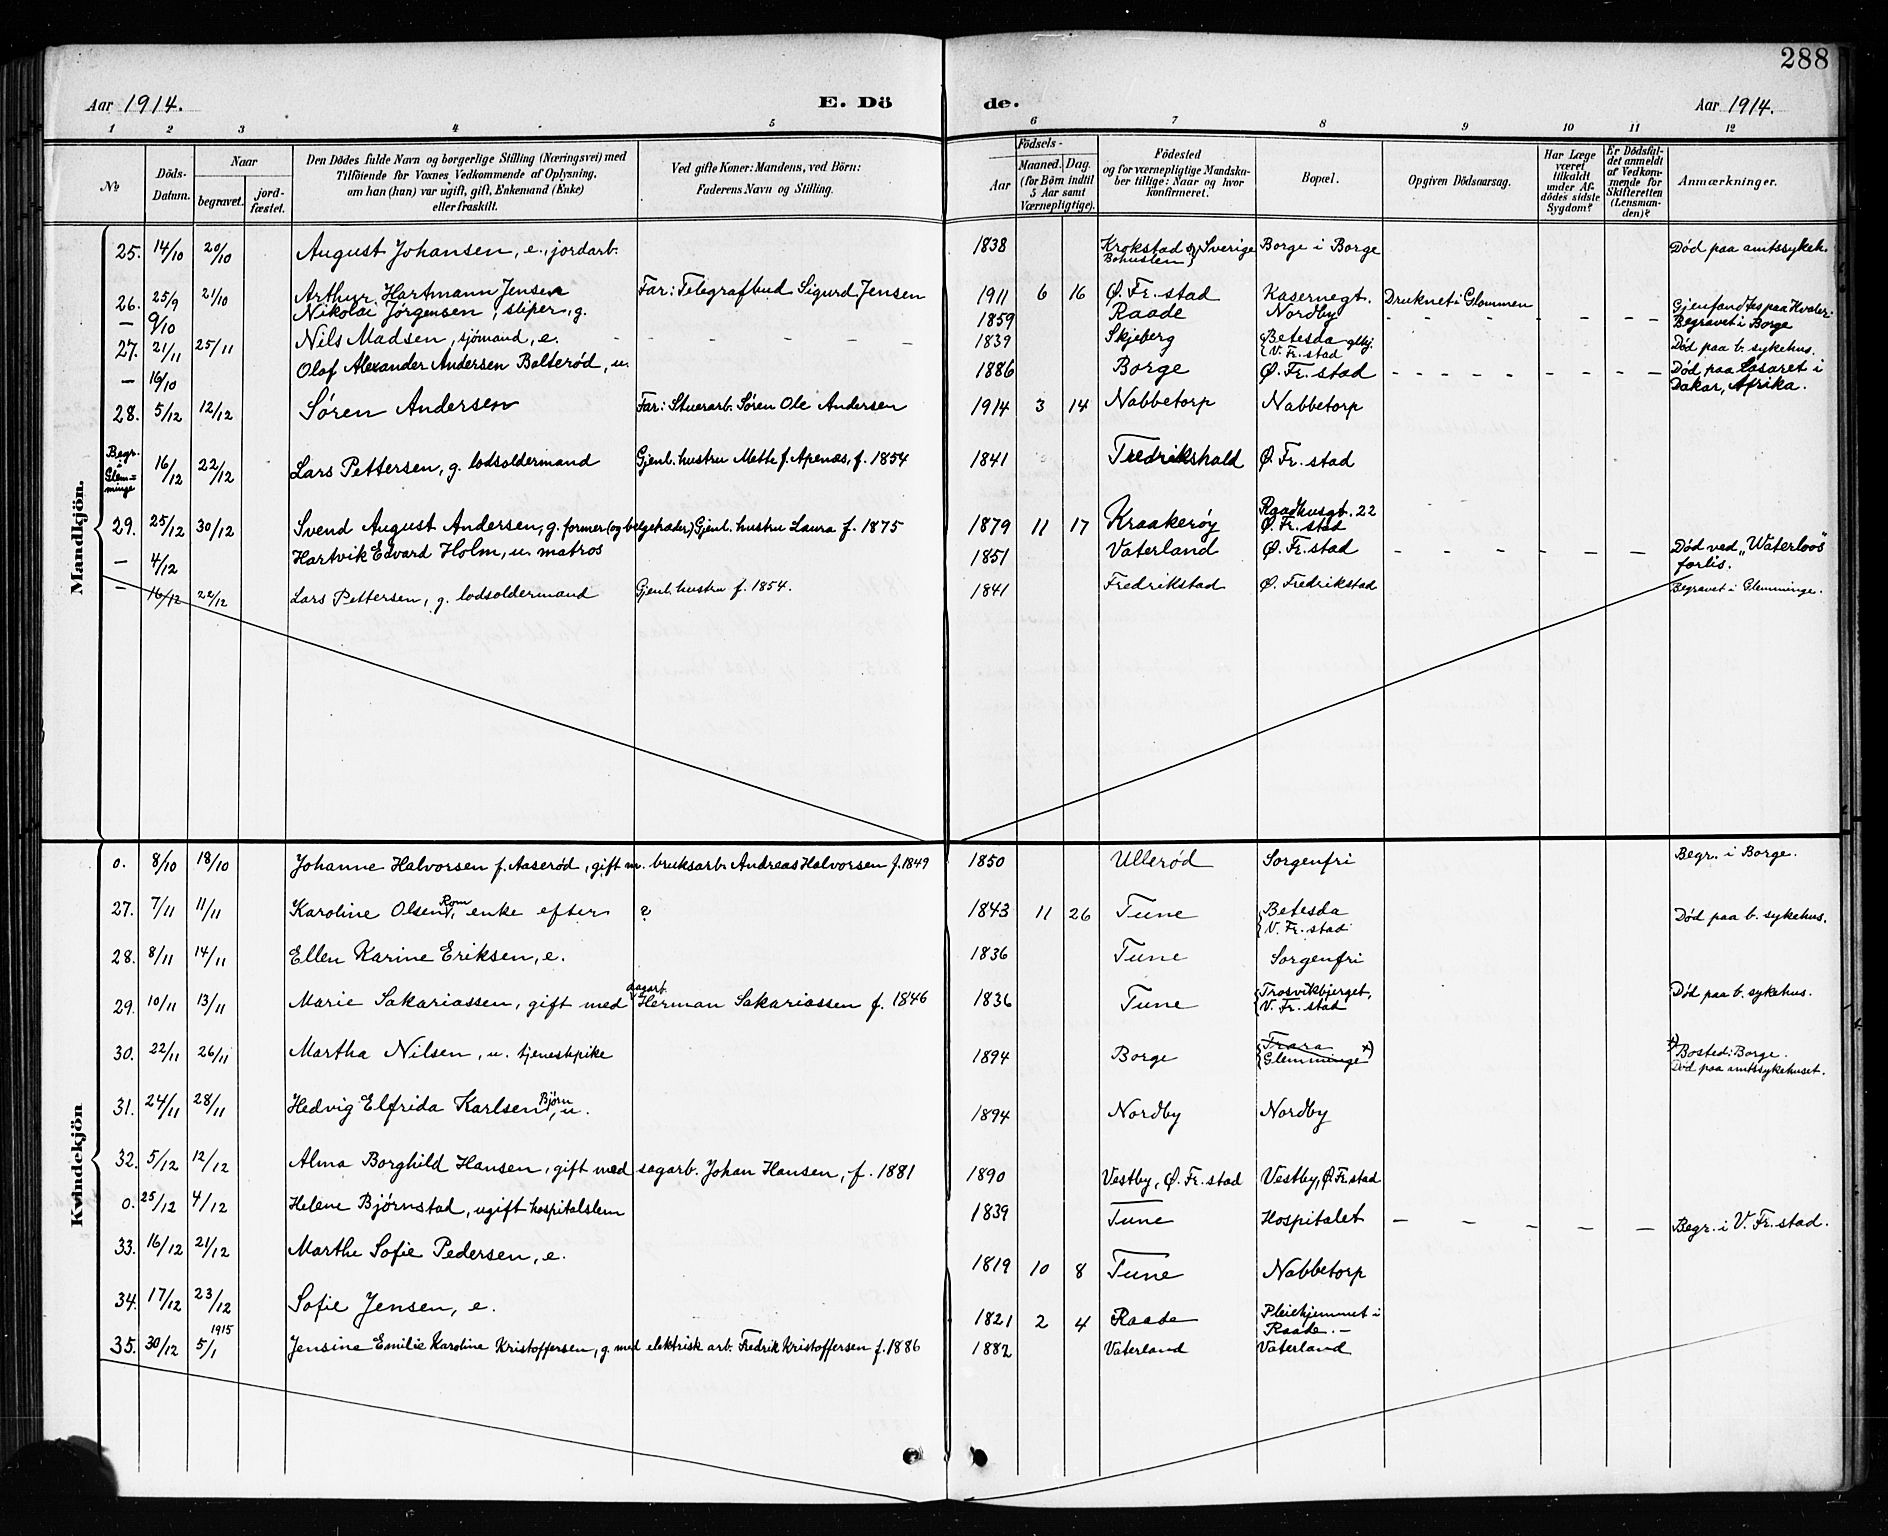 288
Aar 1914. E. Döde. Aar 1914.
1 2 3 4 5 6 7 8 9 10 11 12
No
Döds-Datum.
Naar
begravet.
jordfæstet.
Den Dödes fulde Navn og borgerlige Stilling (Næringsvei) med
Tilföiende for Voxnes Vedkommende af Oplysning,
om han (hun) var ugift, gift, Enkemand (Enke)
eller fraskilt.
Ved gifte Koner: Mandens, ved Börn:
Faderens Navn og Stilling.
Födsels-
Aar
Maaned. Dag.
(for Börn indtil
5 Aar samt
Værnepligtige).
Födested
og for værnepligtige Mandskaber tillige: Naar og hvor
konfirmeret.
Bopæl.
Opgiven Dödsaarsag.
Har Læge
været
tilkaldt
under Afdödes sidste
Sygdom?
Er Dödsfaldet anmeldt
af Vedkommende for
Skifteretten
(Lensmanden)?
Anmærkninger.
Mandkjön.
25. 14/10 20/10 August Johansen, e., jordarb. 1838 Krokstad Bohuslen } Sverige Borge i Borge Død paa amtssykeh.
26. 25/9 21/10 Arthur Hartmann Jensen Far: Telegrafbud Sigurd Jensen 1911 6 16 Ø. Fr.stad Kasernegt. Druknet i Glommen Gjenfandtes paa Hvaler.
— 9/10 Nikolai Jørgensen, sliper, g. 1859 Raade Nordby - - - - - - Begravet i Borge
27. 21/11 25/11 Nils Madsen, sjömand, e. - - - - - 1839 Skjeberg { Betesda glhj. V. Fr.stad Død paa b. sykehus.
— 16/10 Olaf Alexander Andersen Bolterød, u. 1886 Borge Ø. Fr.stad - - - - - - - Død paa Lasaret i Dakar, Afrika.
28. 5/12 12/12 Søren Andersen Far: Stuerarb. Søren Ole Andersen 1914 3 14 Nabbetorp Nabbetorp
Begr. i Glemminge 16/12 22/12 Lars Pettersen, g. lodsoldermand Gjenl. hustru Mette f. Apenæs, f. 1854 1841 Fredrikshald Ø. Fr.stad
29. 25/12 30/12 Svend August Andersen, g. former (og belgetræder) Gjenl. hustru Laura f. 1875 1879 11 17 Kraakerøy Raadhusgt. 22 Ø. Fr.stad
— 4/12 Hartvik Edvard Holm, u. matros 1851 Vaterland Ø. Fr.stad - - - - - Død ved „Waterloos" forlis.
— 16/12 22/12 Lars Pettersen, g. lodsoldermand Gjenl. hustru f. 1854. 1841 Fredrikstad Ø. Fredrikstad Begravet i Glemminge.
Kvindekjön
0. 8/10 18/10 Johanne Halvorsen f. Aaserød, gift m. bruksarb. Andreas Halvorsen f. 1849 1850 Ullerød Sorgenfri Begr. i Borge.
27. 7/11 11/11 Karoline Olsen Rom, enke efter ? 1843 11 26 Tune { Betesda V. Fr.stad Død paa b. sykehus.
28. 8/11 14/11 Ellen Karine Eriksen, e. 1836 Tune Sorgenfri
29. 10/11 13/11 Marie Sakariassen, gift med dagarb. Herman Sakariassen f. 1846 1836 Tune { Trosvikbjerget, V. Fr.stad Død paa b. sykehus.
30. 22/11 26/11 Martha Nilsen, u. tjenestpike 1894 Borge { Trara Glemminge x) x) Bosted: Borge. Død paa amtssykehuset.
31. 24/11 28/11 Hedvig Elfrida Karlsen Bjørn, u. 1894 Nordby Nordby
32. 5/12 12/12 Alma Borghild Hansen, gift med sagarb. Johan Hansen, f. 1881 1890 Vestby, Ø. Fr.stad Vestby, Ø. Fr.stad
0. 25/12 4/12 Helene Bjørnstad, ugift hospitalslem 1839 Tune Hospitalet - - - - - Begr. i V. Fr.stad.
33. 16/12 21/12 Marthe Sofie Pedersen, e. 1819 10 8 Tune Nabbetorp
34. 17/12 23/12 Sofie Jensen, e. 1821 2 4 Raade Pleiehjemmet i Raade. -
35. 30/12 5/1 1915 Jensine Emilie Karoline Kristoffersen, g. med elektrisk arb. Fredrik Kristoffersen f. 1886 1882 Vaterland Vaterland